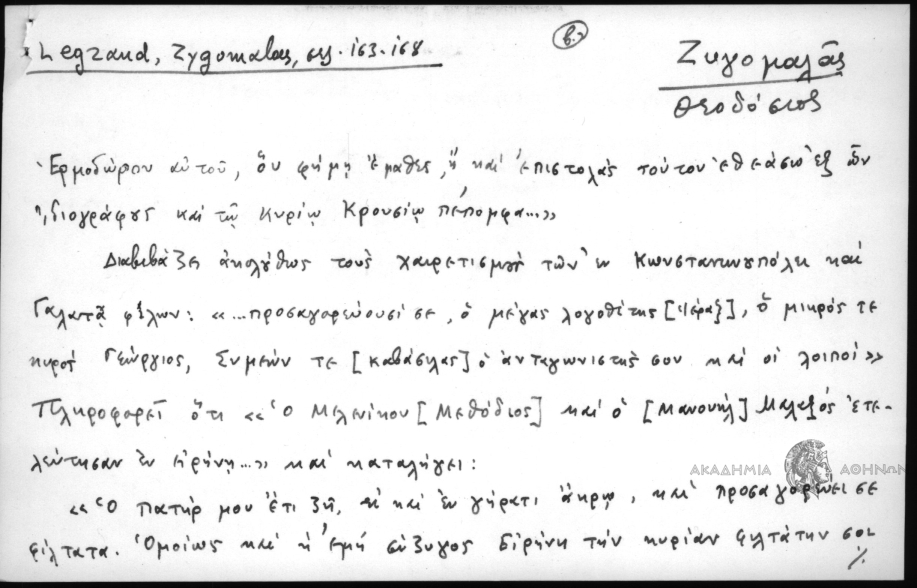 Legrand, Zygomalas, σελ. 163-168
β)
Ζυγομαλᾶς
Θεοδόσιος
Ἑρμοδώρου αὐτοῦ, ὅν φήμῃ ἔμαθες, ἤ καί ἐπιστολάς τούτου ἐθεάσω ἐξ ὧν
ἰδιογράφους καί τῷ Κυρίῳ Κρουσίῳ πέπομφα...»
Διαβιβάζει ἀκολούθως τούς χαιρετισμούς τῶν ἐν Κωνσταντινουπόλει καί
Γαλατᾷ φίλων: «...προσαγορεύουσί σε, ὁ μέγας λογοθέτης [Ἱέραξ], ὁ μικρός τε
κυρός Γεώργιος, Συμεών τε [Καβάσιλας] ὁ ἀνταγωνιστής σου καί οἱ λοιποί»
Πληροφορεῖ ὅτι «Ὁ Μελενίκου [Μεθόδιος] καί ὁ [Μανουήλ] Μαλαξός ἐτε-
λεύτησαν ἐν εἰρήνῃ...» καί καταλήγει:
ΑΚΑΔΗΜΙΑ ΑΘΗΝΩΝ
«Ὁ Πατήρ μου ἔτι ζῇ, εἰ καί ἐν γήρατι ἄκρῳ, καί προσαγορεύει σε
φίλτατα. Ὁμοίως καί ἡ ἐμή σύζυγος Εἰρήνη τήν κυρίαν φιλτάτην σοι
./.